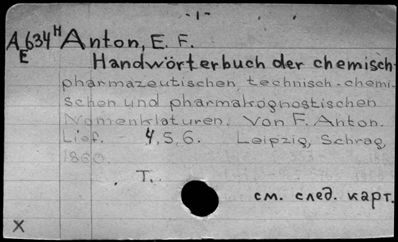 - 1 -
A634H Anton, E. F.
E Handwörterbuch der chemisch-
pharmazeutischen, technisch-chemi-
schen und pharmakognostischen
Nomenklaturen. Von F. Anton.
Lief. 4,5,6. Leipzig, Schrag,
1860.
T.
см. след. карт.
X